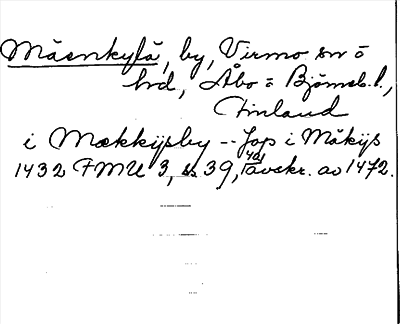 Mäenkylä, by, Virmo sn o
hd, Åbo o Björneb. l.,
Finland
i Mækkijsby -- Jop i Mäkijs
1432 FMU 3, s. 39, i avskr. av 1472.